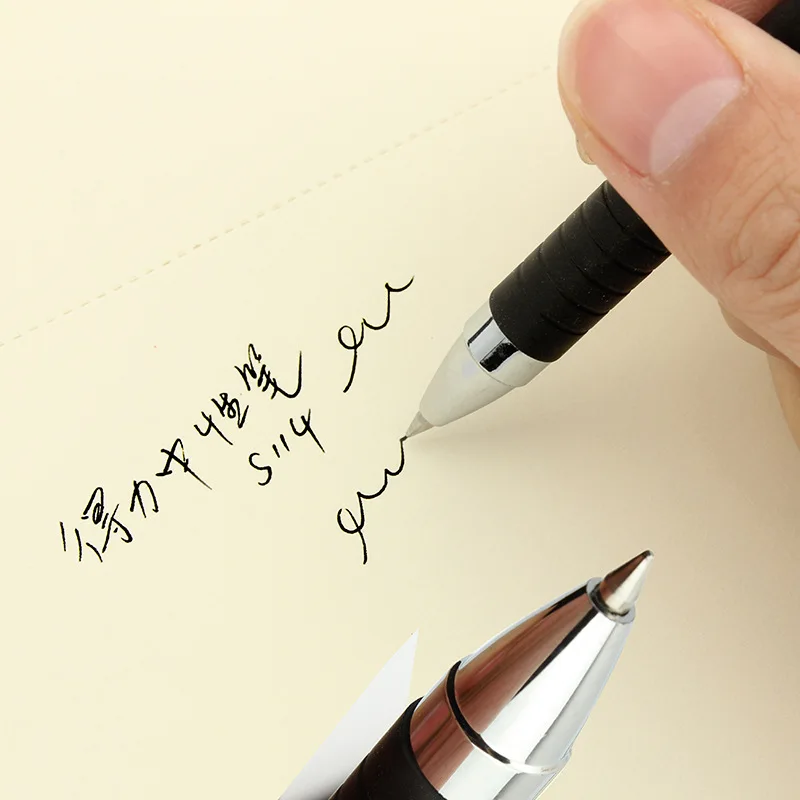 得力中性笔
S114